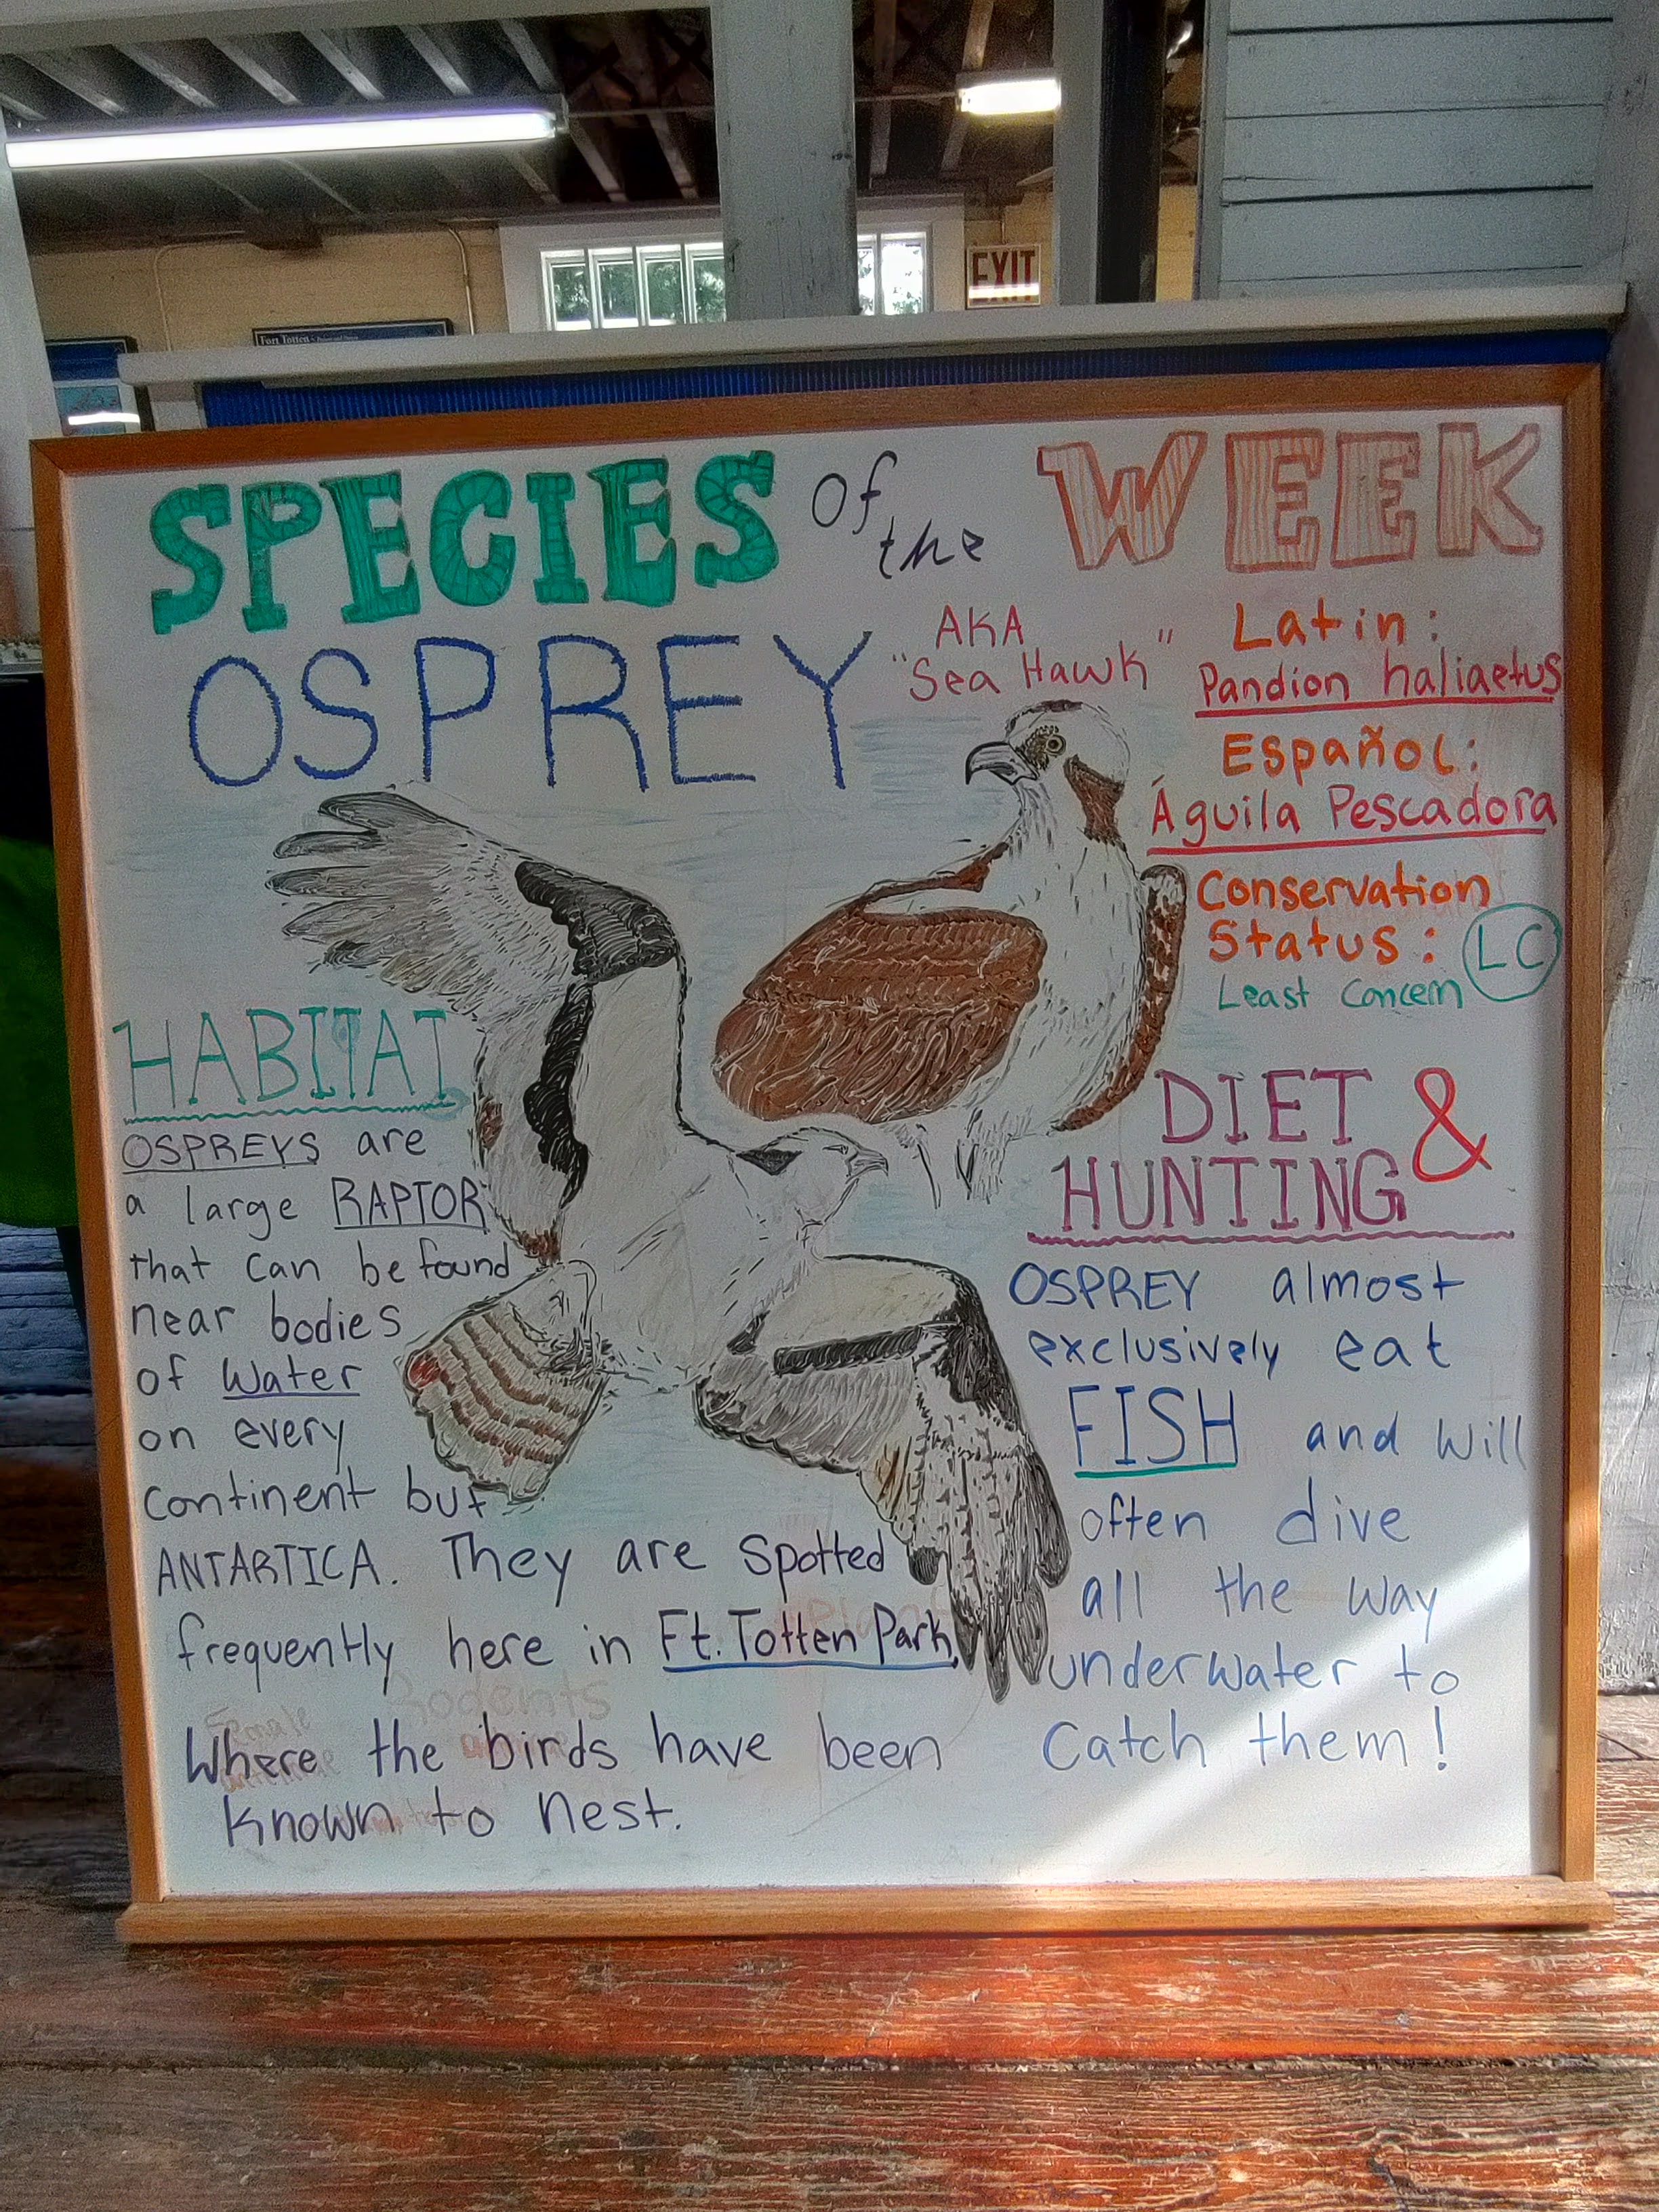 EXIT
Fort Totten
SPECIES of the WEEK
OSPREY
AKA
"Sea Hawk"
Latin:
Pandion haliaetus
Español:
Águila Pescadora
Conservation
Status: LC
Least Concern
HABITAT
OSPREYS are
a large RAPTOR
that can be found
near bodies
of Water
on every
continent but
ANTARTICA. They are spotted
frequently here in Ft. Totten Park,
Where the birds have been
known to nest.
DIET &
HUNTING
OSPREY almost
exclusively eat
FISH and will
often dive
all the way
underwater to
Catch them!
Rodents
Female